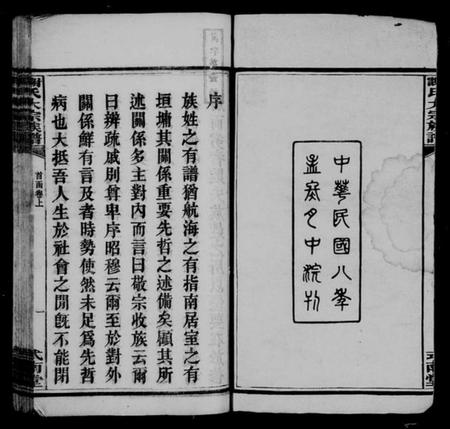 中華民國八年
孟冬月中浣刊
序
族姓之有譜猶航海之有指南居室之有
垣墉其關係重要先哲之述備矣顧其所
述關係多主對內而言曰敬宗收族云爾
曰辨疏戚別尊卑序昭穆云爾至於對外
關係鮮有言及者時勢使然未足爲先哲
病也大抵吾人生於社會之間旣不能閉
謝氏大宗族譜
首函卷上
一
式南堂